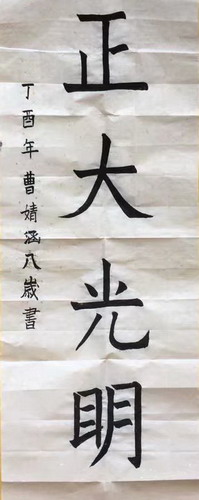 正大光明
丁酉年曹婧涵八歲書